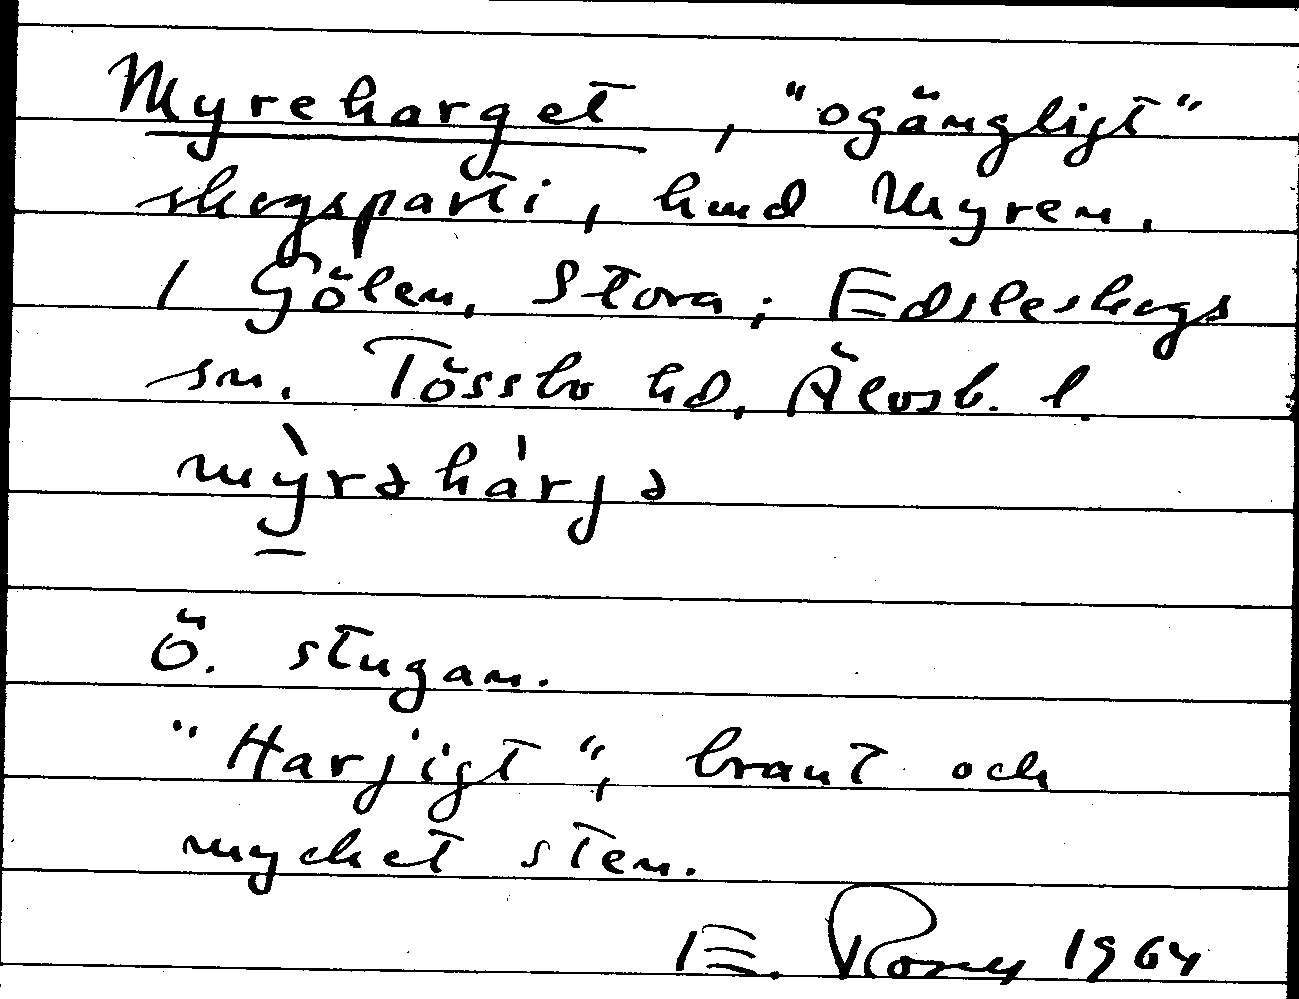 Myreharget, "ogängligt"
skogsparti, hmd Myren,
1 Gölen, Stora; Edsleskogs
sn. Tössbo hd, Älvsb. l.
mỳrəhár̩jə
Ö. stugan.
"Harjigt", brant och
mycket sten.
E. 1964